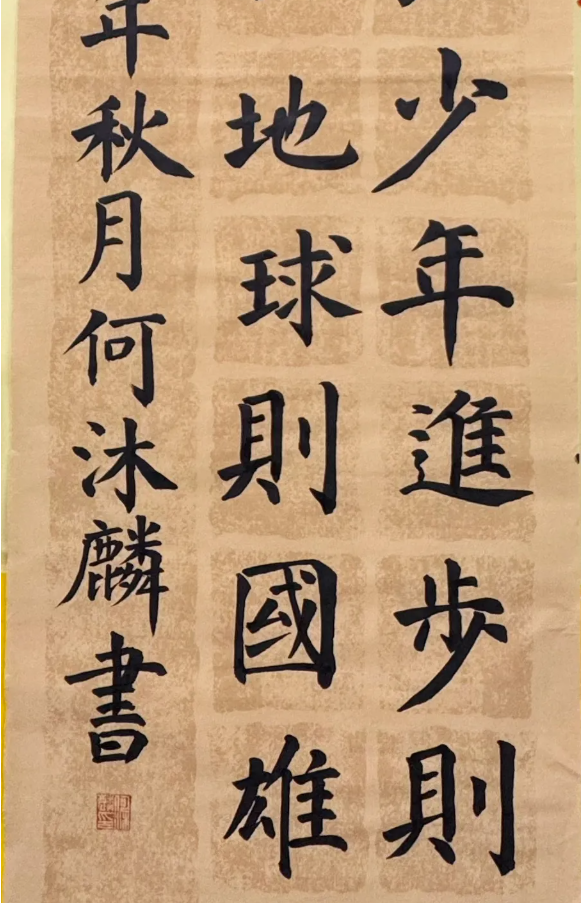 少年進步則
地球則國雄
年秋月何沐麟書